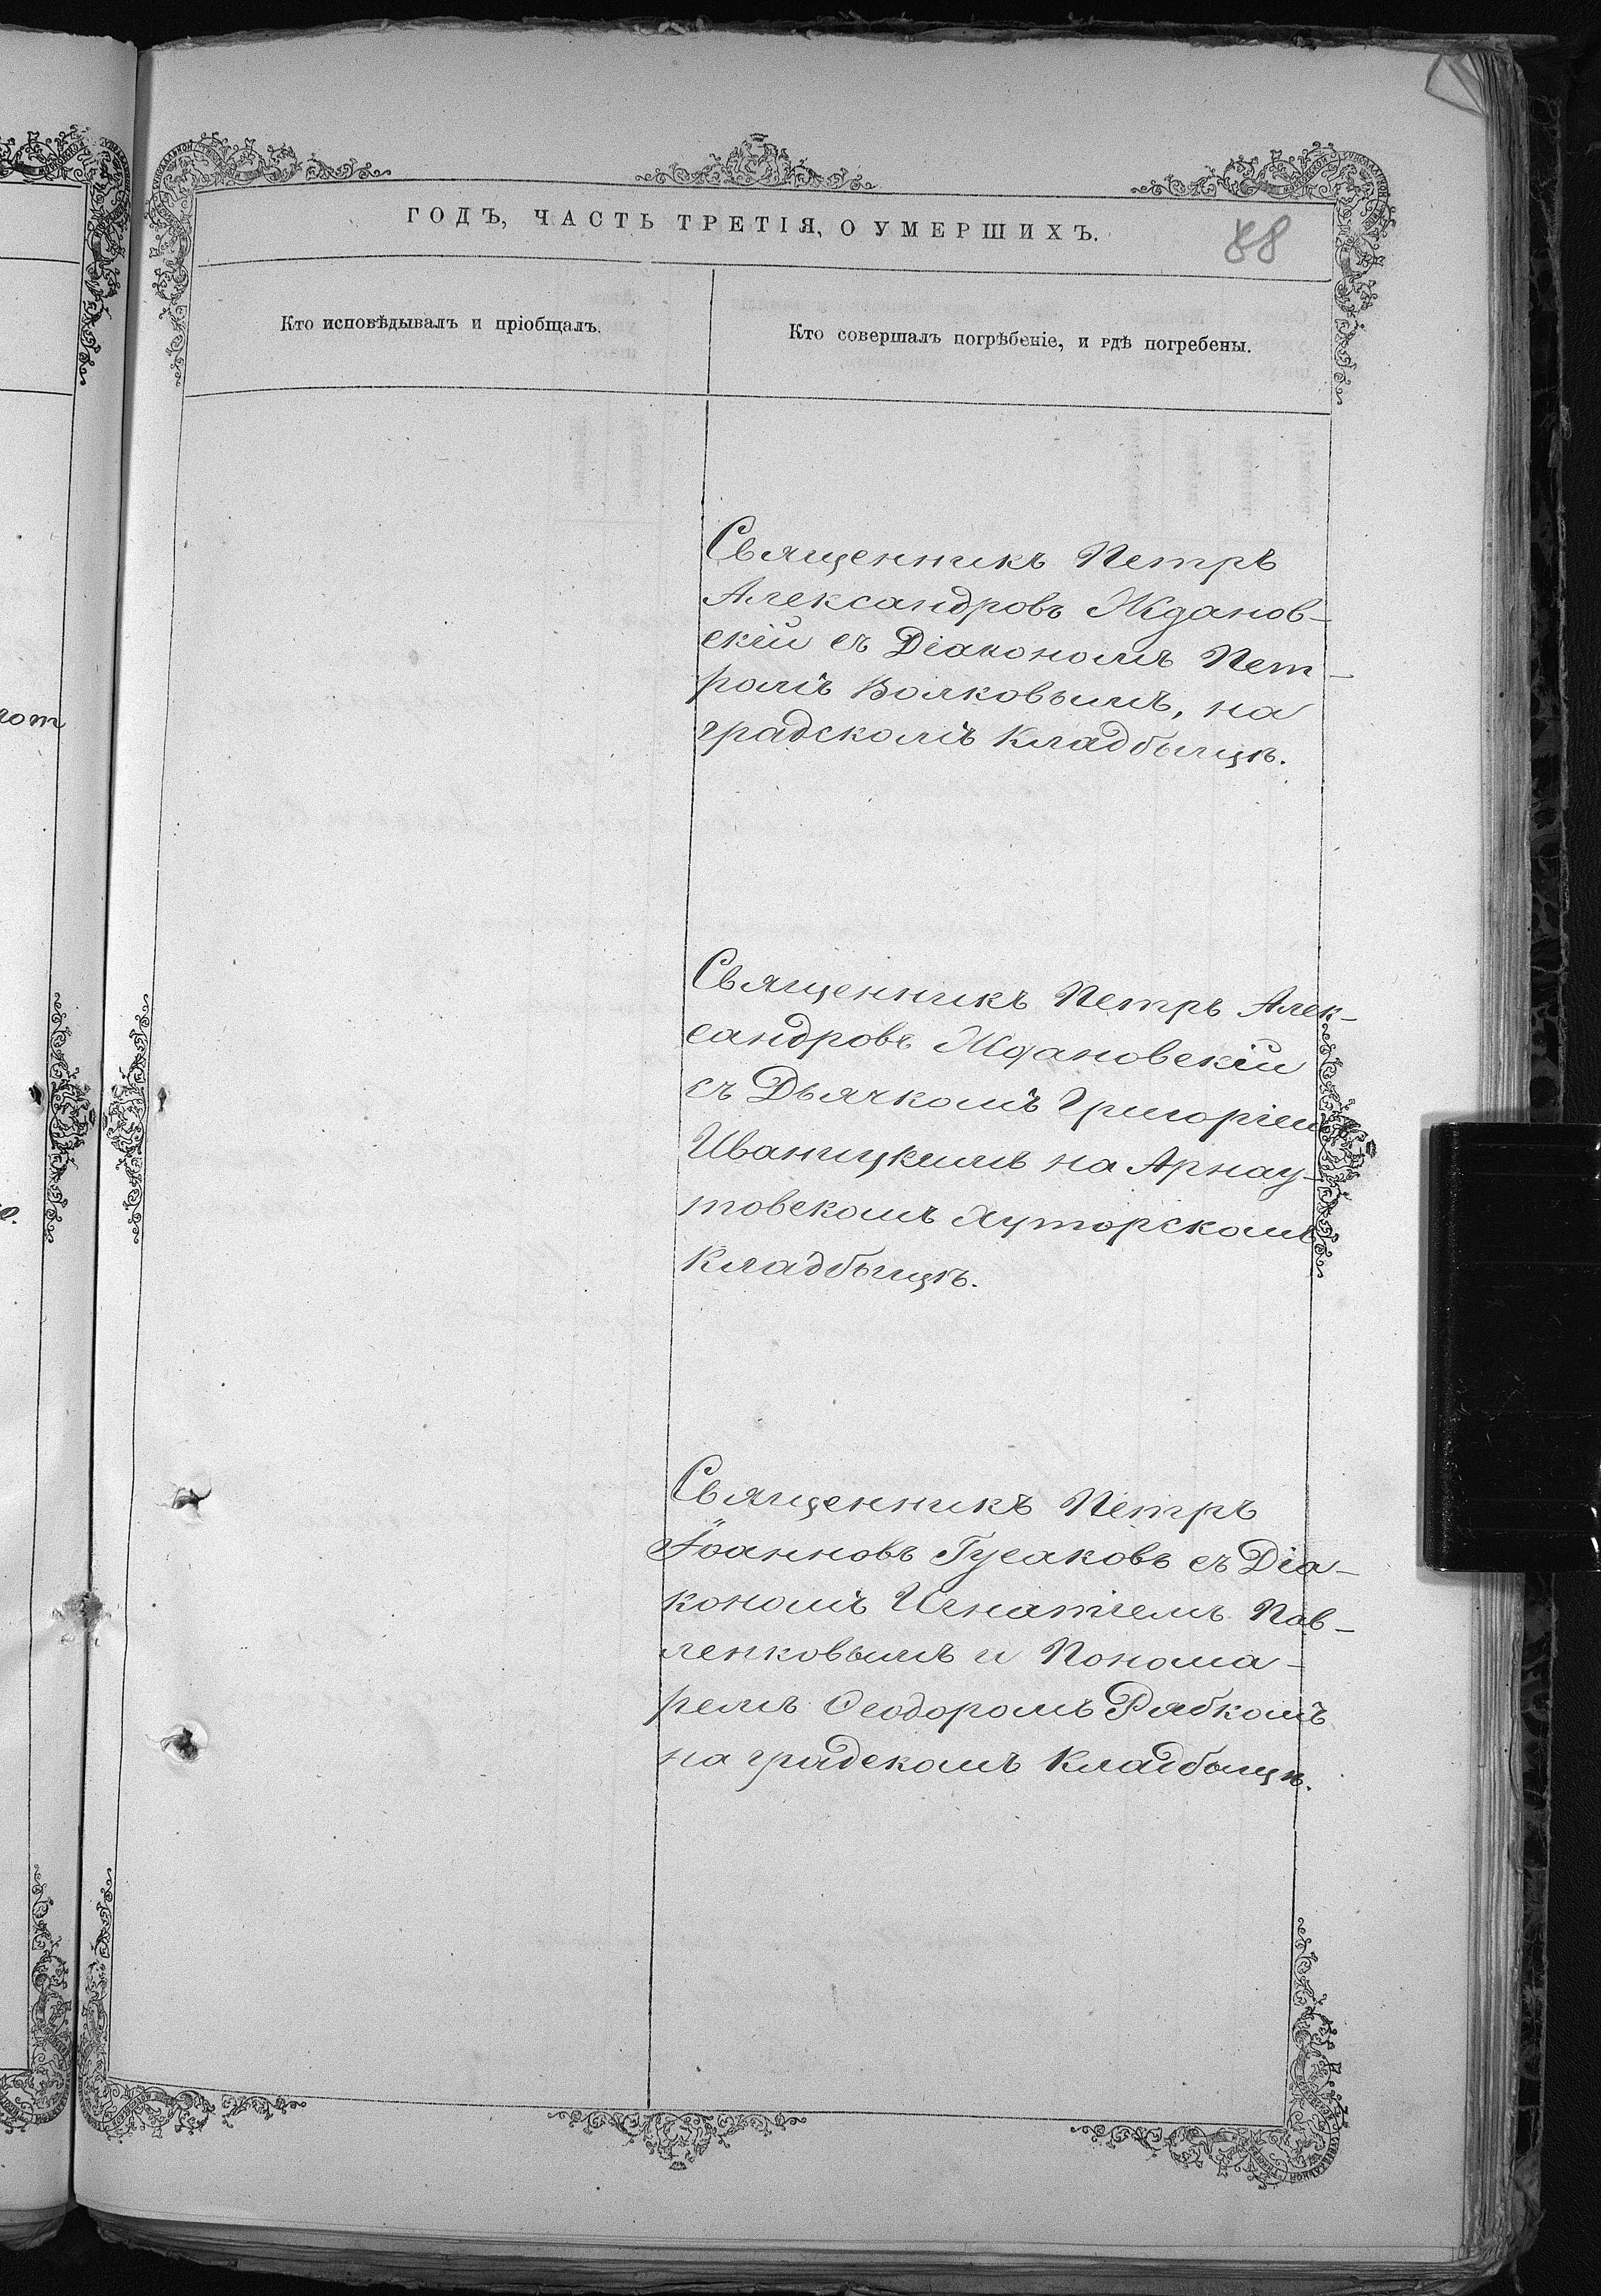 ГОДЪ, ЧАСТЬ ТРЕТІЯ, О УМЕРШИХЪ.
88
Кто исповѣдывалъ и пріобщалъ.
Кто совершалъ погрѣбеніе, и гдѣ погребены.
Священникъ Петръ
Александровъ Жданов-
скій съ Діакономъ Пет-
ромъ Волковымъ, на
градскомъ Кладбыщѣ.
Священникъ Петръ Алек-
сандровъ Ждановскій
съ Дьячкомъ Григоріемъ
Иваницкимъ на Арнау-
товскомъ Хуторскомъ
Кладбыщѣ.
Священникъ Петръ
Іоанновъ Гусаковъ съ Діа-
кономъ Игнатіемъ Пав-
ленковымъ и Понома-
ремъ Ѳеодоромъ Рябкомъ
на градскомъ Кладбыщѣ.